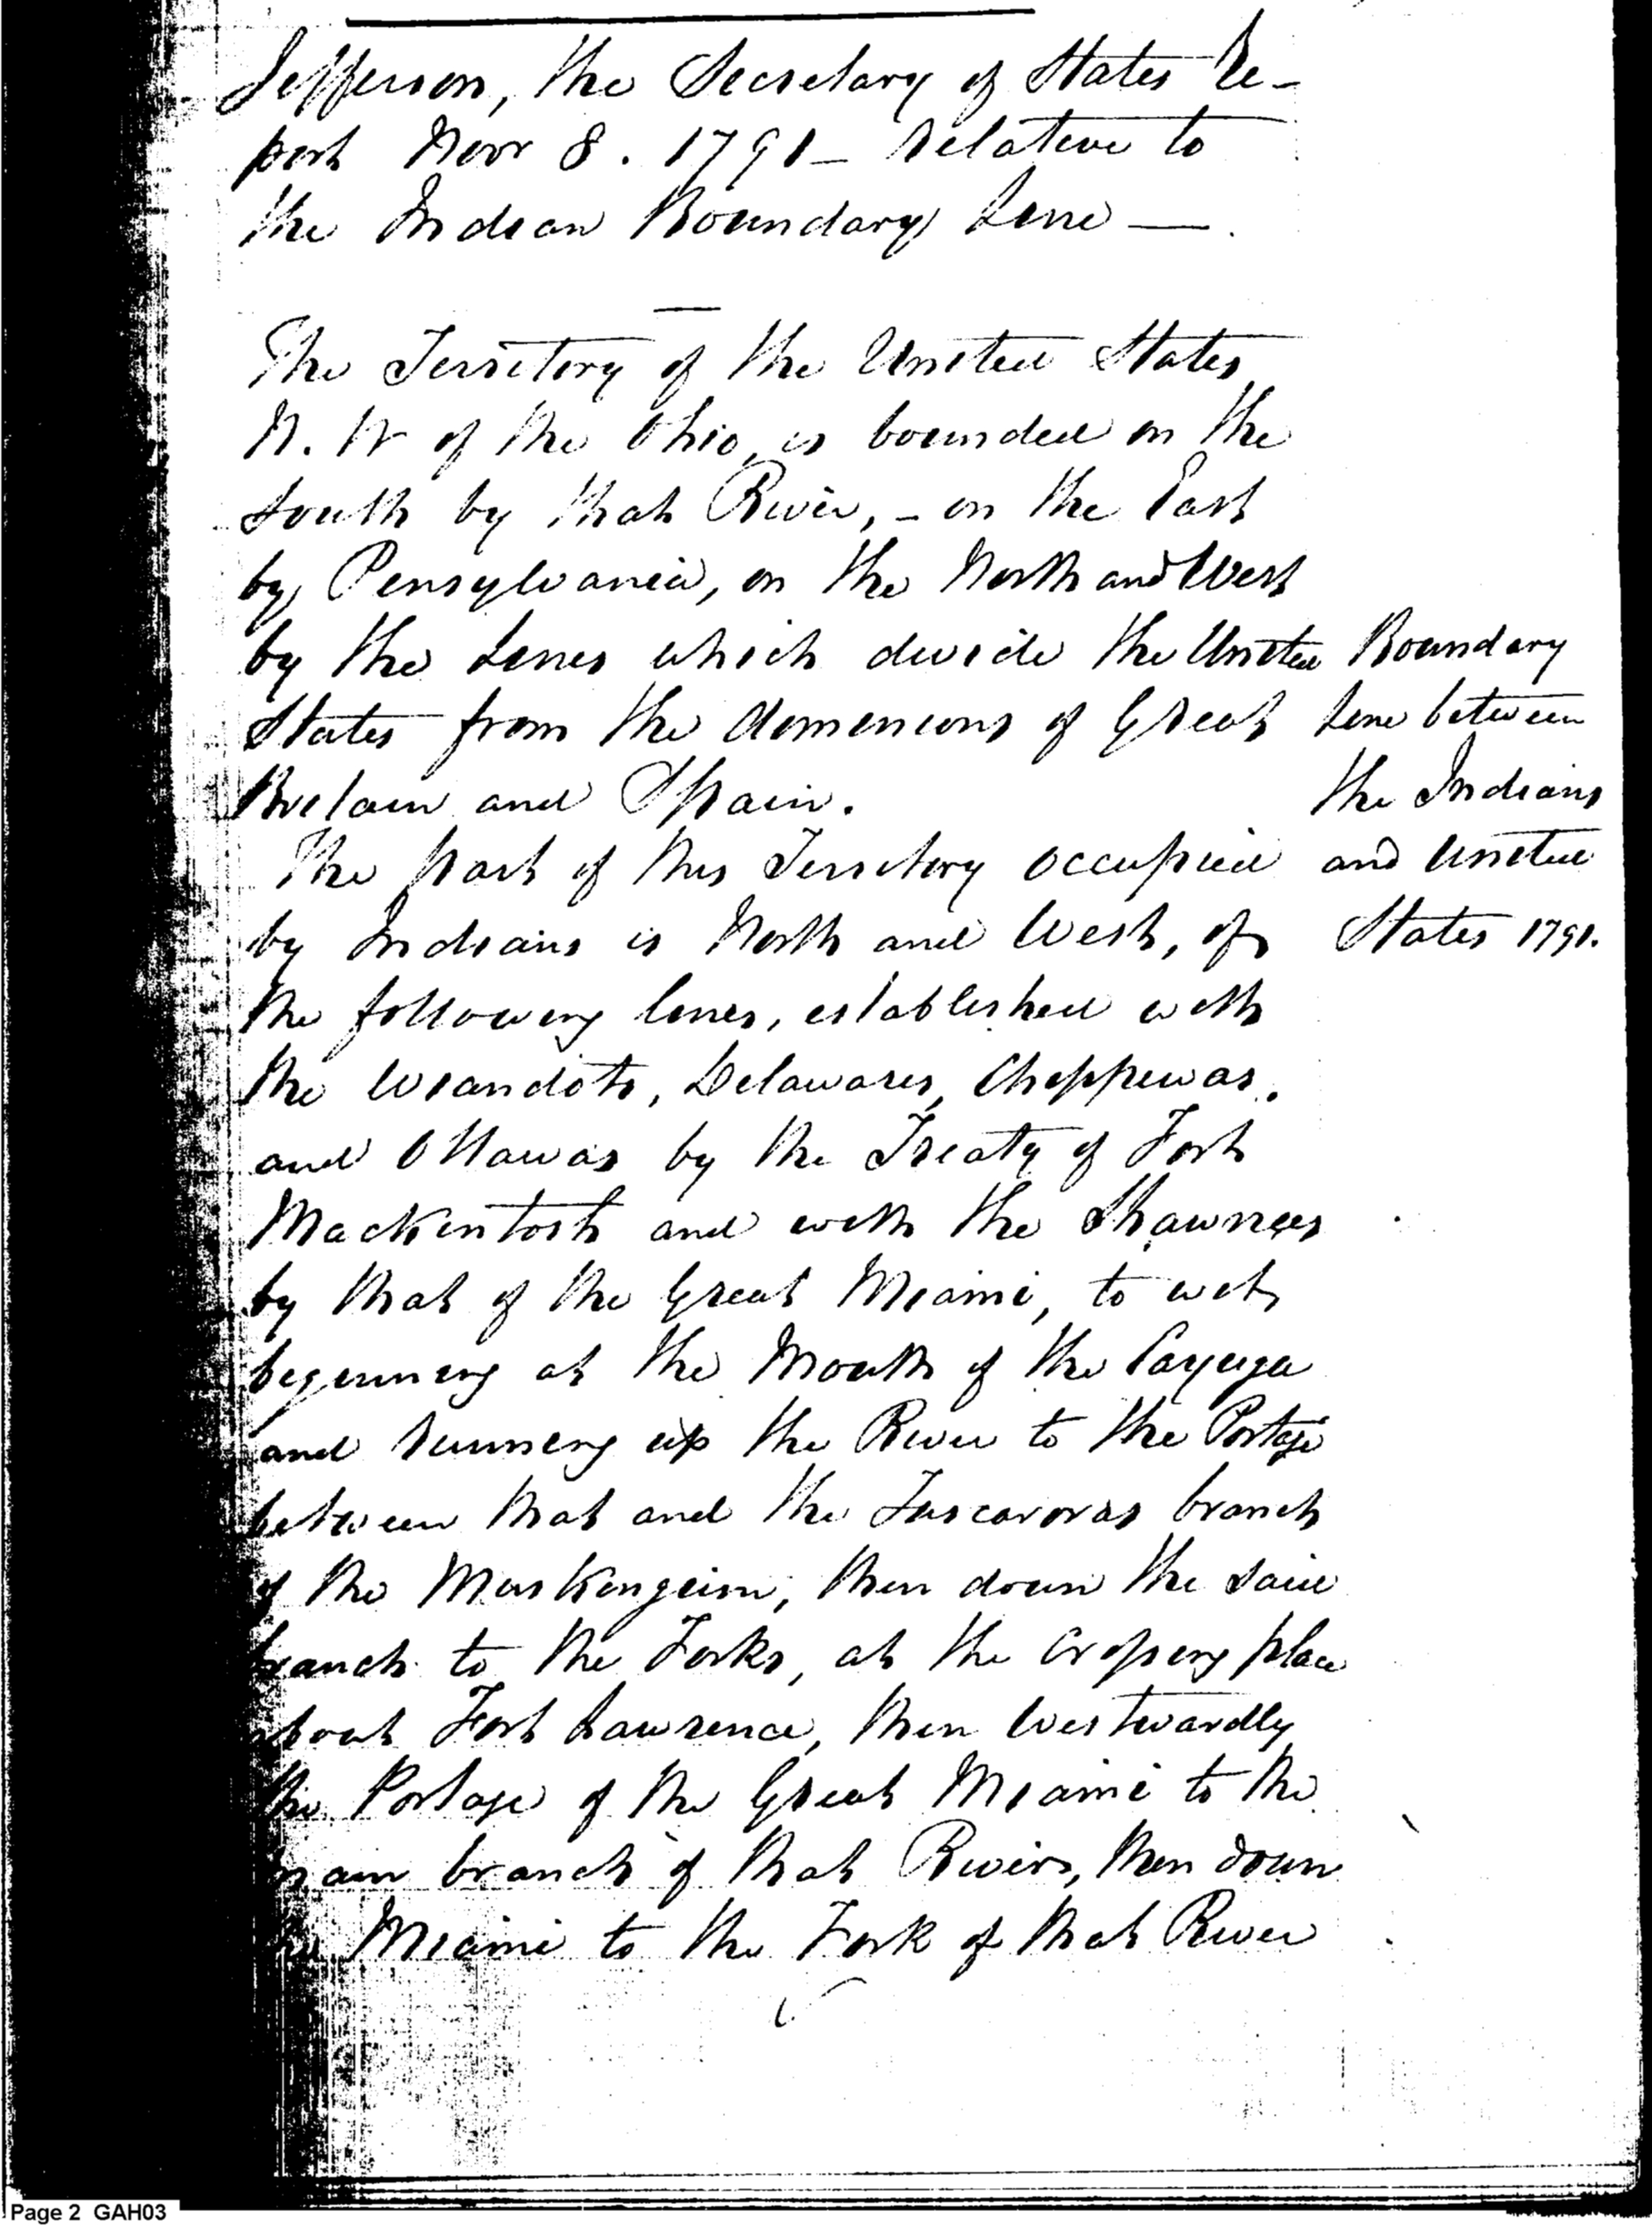 Jefferson, the Secretary of States Re-
port Novr 8. 1791 - relative to
the Indian Boundary Line —.
The Territory of the United States
N. W of the Ohio, is bounded on the
South by that River, - on the East
by Pensylvania, on the North and West
by the Lines which divide the United
States from the domenions of Great
Britain and Spain.
Boundary
Line between
the Indians
and United
States 1791.
The part of this Territory occupied
by Indians is North and West, of
the following lines, established with
the Wiandots, Delawares, Chippewas,
and Ottawas by the Treaty of Fort
Mackintosh and with the Shawnees
by that of the Great Miami, to wit,
beginning at the Mouth of the Cayuga
and running up the River to the Portage
between that and the Tuscaroras branch
of the Muskingum, then down the said
branch to the Forks, at the crossing place
about Fort Lawrence, then Westwardly
the Portage of the Great Miami to the
main branch of that River, then down
the Miami to the Fork of that River
Page 2 GAH03